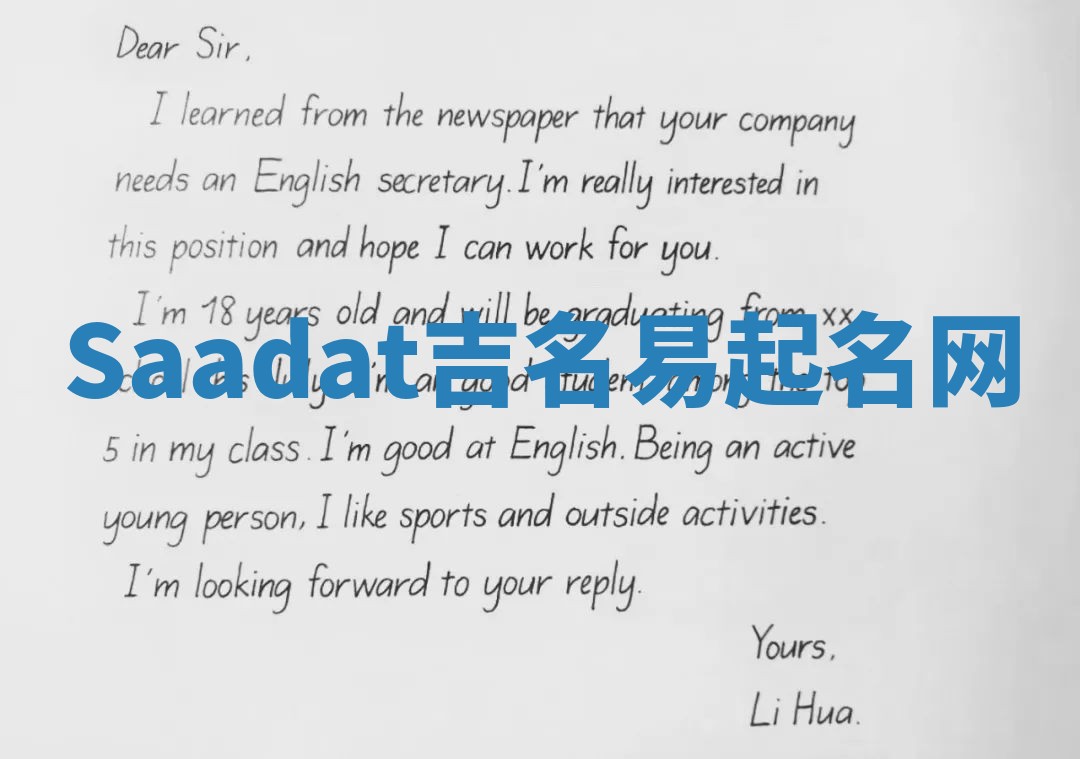 Dear Sir,
I learned from the newspaper that your company
needs an English secretary. I'm really interested in
this position and hope I can work for you.
I'm 18 years old and will be graduating from xx
Saadat吉名易起名网
5 in my class. I'm good at English. Being an active
young person, I like sports and outside activities.
I'm looking forward to your reply.
Yours,
Li Hua.